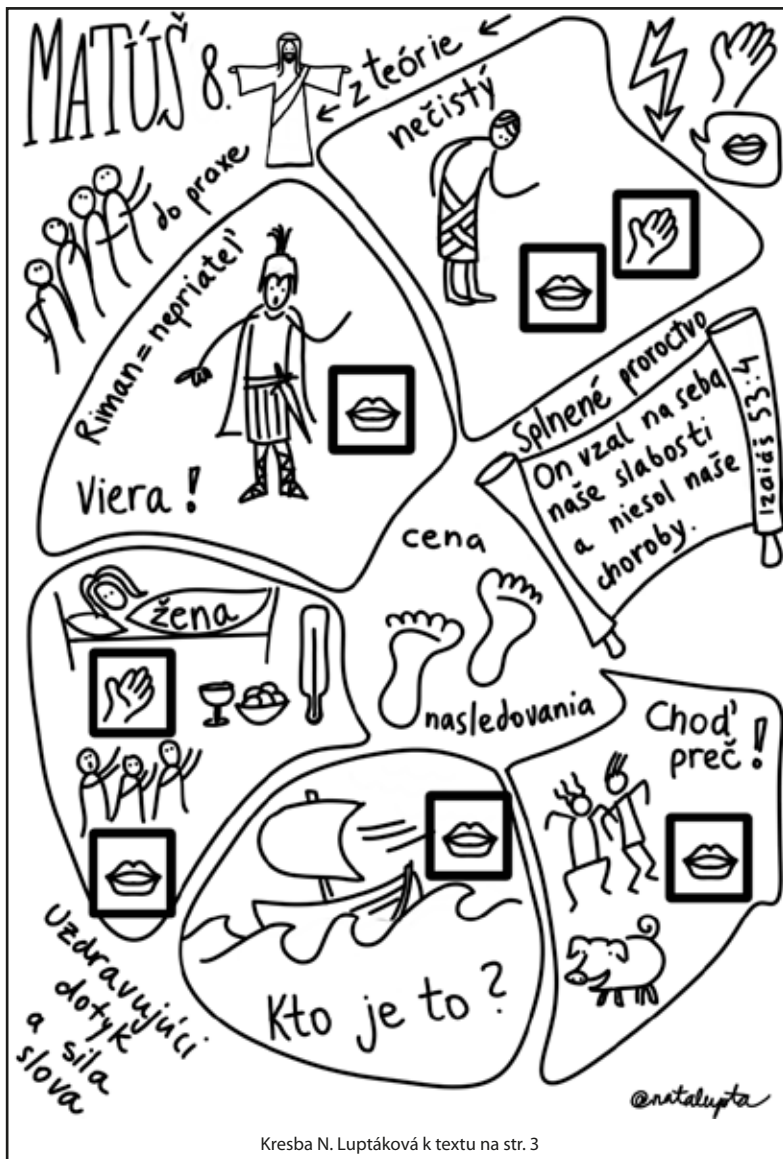 MATÚŠ 8.
z teórie
do praxe
nečistý
Riman = nepriateľ
Viera!
Splnené proroctvo
On vzal na seba
naše slabosti
a niesol naše
choroby.
Izaiáš 53:4
cena
nasledovania
žena
Choď
preč!
Kto je to?
Uzdravujúci
dotyk
a sila
slova
@natalupta
Kresba N. Luptáková k textu na str. 3